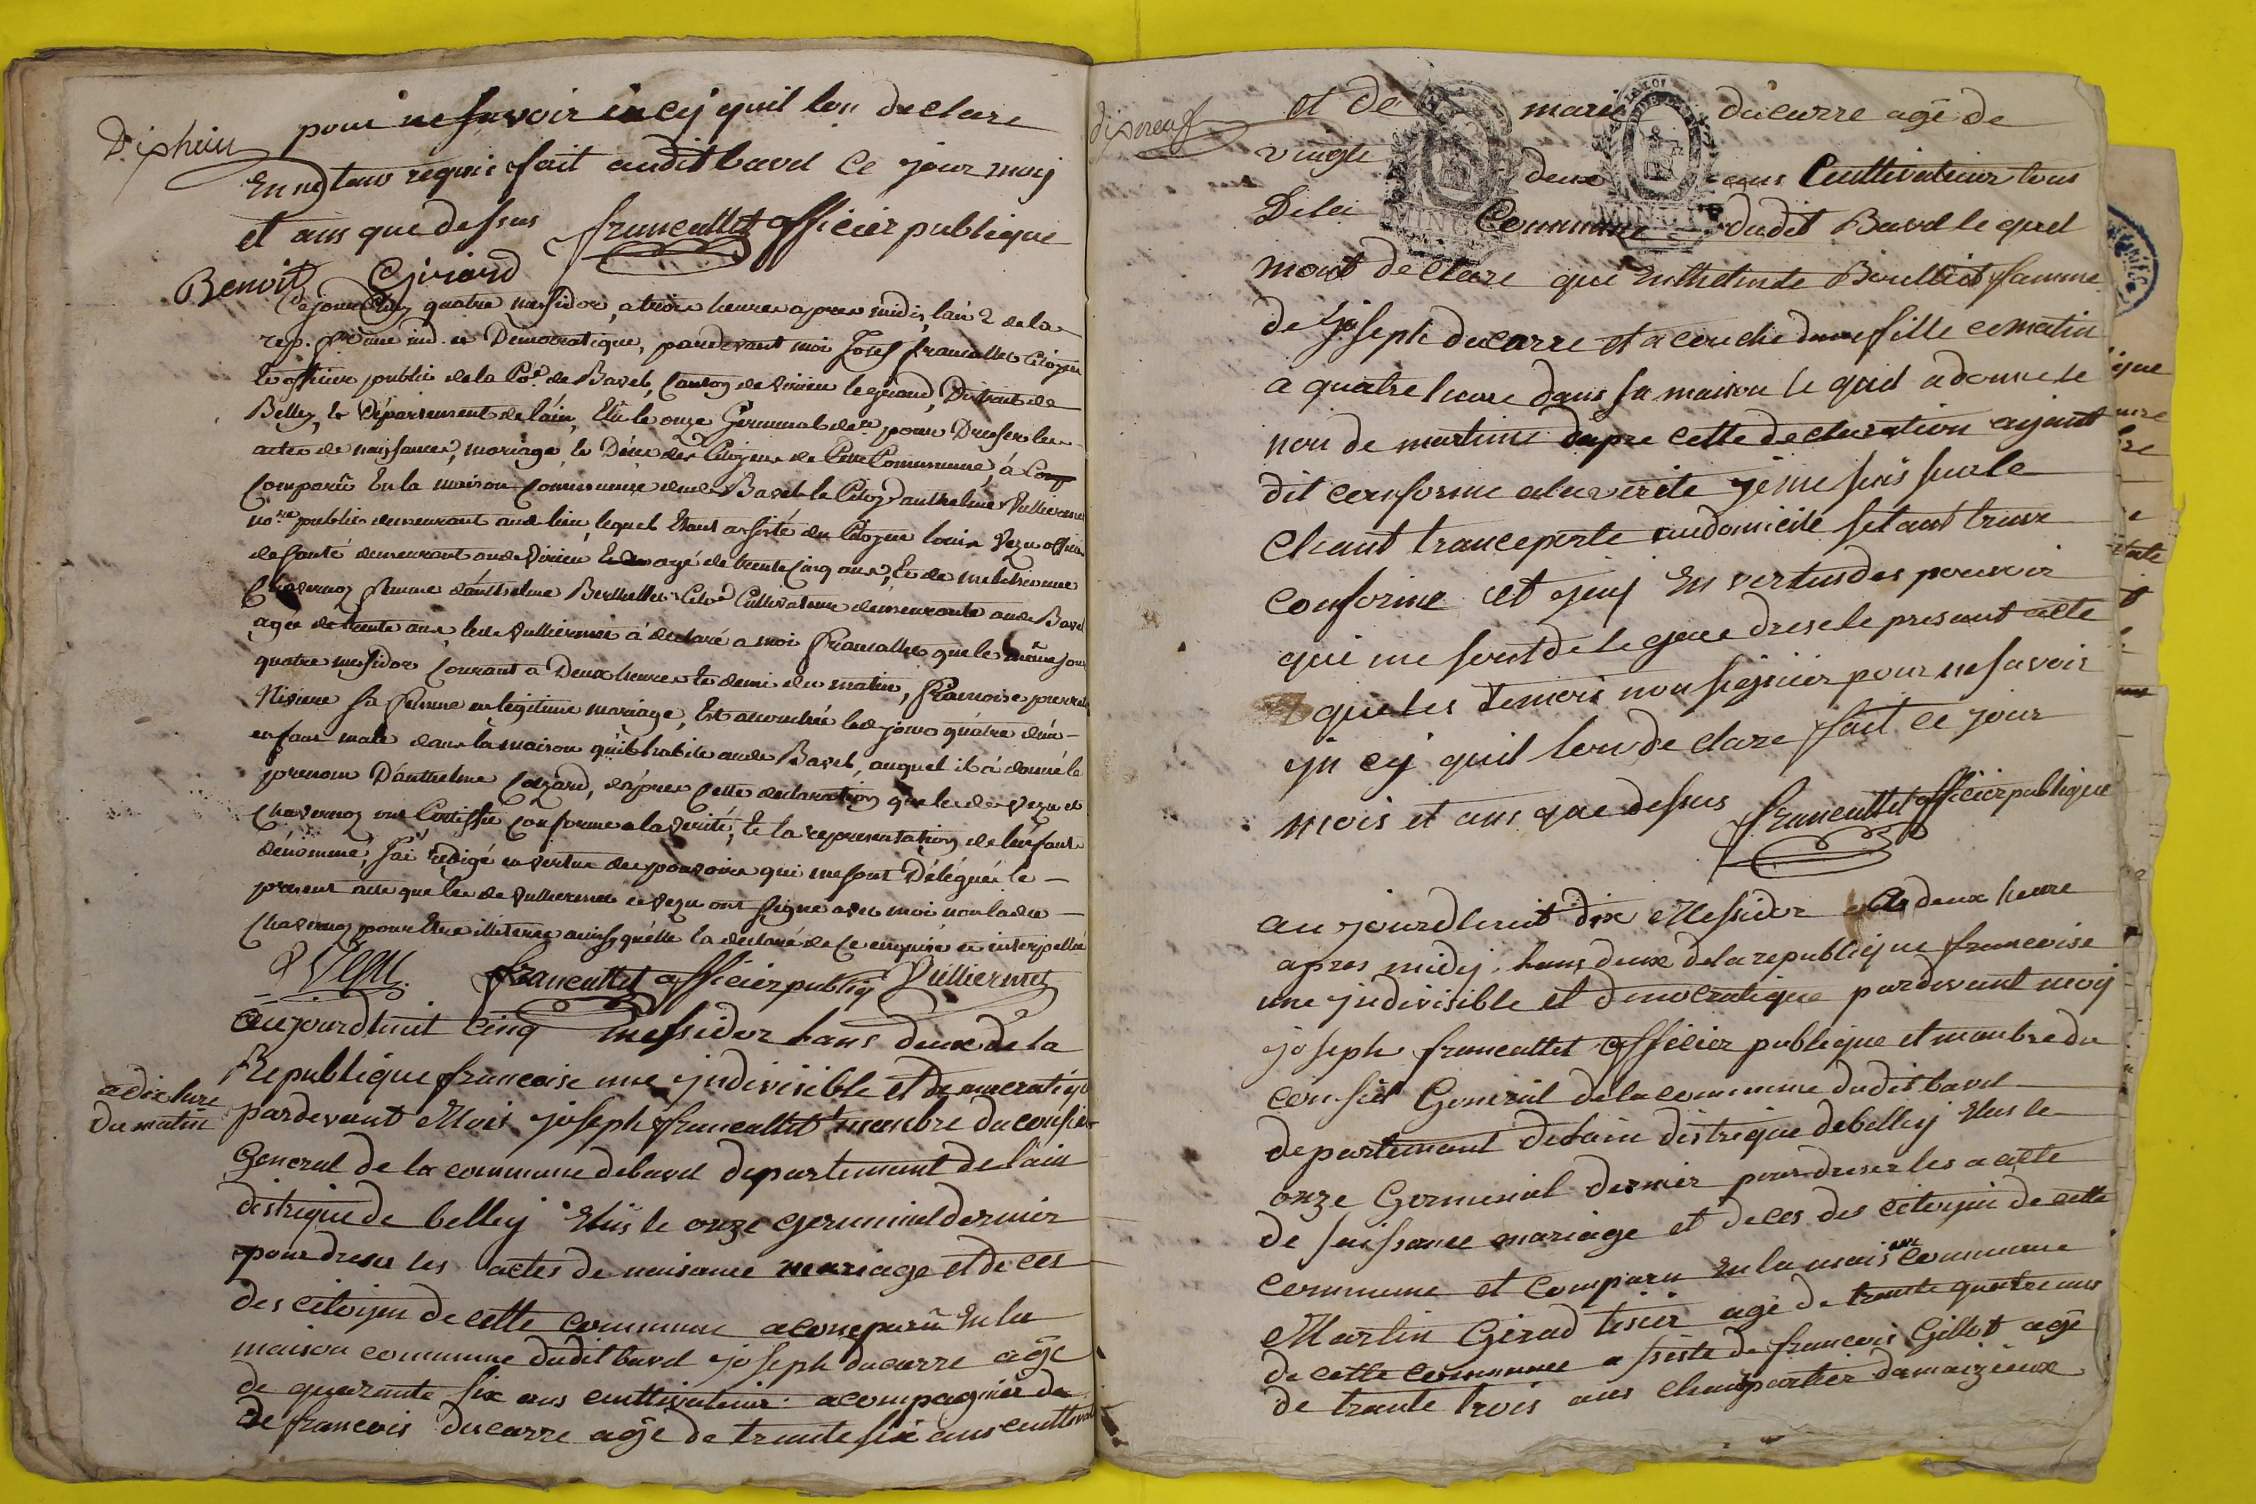 Dixhuit
pour ne savoir incy quil lon declare
En no tous requis fait audit bavd Ce jour moy
et ans que dessus francallet officier publique
Benoit Girard
Ce jourdhuy quatre messidor, a trois heures apres midis, lan 2 de la
rep. f. une ind. et Democratique, pardevant moi Josef francallet Citoyen
et officier public de la Coe. de Bavet, Canton de virieu le grand, District de
Belley, et Département de lain, Elû le onze Germinal der. pour Dresser les
actes de naissances, mariage, et Décés des Citoyens de Cette Commune, à Comp
Comparû En la maison Commune dud. Bavet le Citoy. anthelme Vulliermet
no.re public demeurant aud. lieu, lequel Etant assisté du Citoyen louis Vezu officier
de Santé demeurant aud. Virieu agé de trente Cinq ans, Et de melchionne
Chavernoz femme danthelme Berthellet Cito. Cultivateur demeurante aud. Bavet
agée de trente ans, led. Vulliermet à declaré a moi francallet que le même jour
quatre messidor Courant a Deux heures et demi du matin, francoise pierrette
Niviere sa femme en légitime mariage, Est accouchée led. jour quatre d'un
enfant male dans la maison qu'il habite aud. Bavet, auquel il à donné le
prenom D'anthelme Cezard, d'apres Cette declaration que les d. Vezu et
Chavernoz ont Certiffié Conforme a la verité, Et la representation de l'enfant
dénommé, J'ai rédigé en vertue des pouvoirs qui me sont Délégués le
present acte que les d. Vulliermet et Vezu ont signé avec moi non ladite
Chavernoz pour Etre illiterée ainsy qu'elle la declaré de Ce enquise et interpellée
Vezu francallet officier publiq Vulliermet
aujourdhuit cinq messidor lans deux de la
a dix hure
du matin
Republique francoise une jndivisible et democratiqe
pardevant Mois joseph francallet manbre du consiel
General de la commune debavd departement de lain
distrique de belley Elus le onze germinal dernier
pour dreser les actes de naisance mariage et deces
des citoyen de cette commune a conparu En la
maison commune dudit bavd joseph ducarre agé
de quarante six ans cultivateur acompagnié de
de francois ducarre agé de trante six ans cultivat
dixneuf
et de marie ducarre agé de
vingte deux ans Cultivateur tous
De la Commune dudit Bavd le quel
mont declare que Enthelmde Boulliet famme
de joseph ducarre et a couche dune fille ce matin
a quatre heure dans sa maison le quel a donne le
non de martine dapre cette declaration ayant
dit conforme a la verite je me suis sur le
Chant tranceporte au domicile setant truve
conforme et jeuy En vertus des pouvoir
qui me sont de le gue drese le present acte
que les temois non signier pour ne savoir
jn cy quil lon declare fait ce jour
mois et ans que dessus francallet officier publique
au jourdhuit dix Messidor a deux heure
apres midy lans deux de la republique francoise
une jndivisible et dmocratique pardevant moy
joseph francallet officier publique et manbre du
consiel General de la commune dudit bavd
departemant de lain distrique de belley Elus le
onze Germinal dernier pour dreser les a acte
de naissance mariage et deces des citoyin de cette
commune et comparu En la maison commune
Martin Girad tisier agé de trante quatre ans
de cette commune a siste de francois Gillot agé
de trante trois ans chanpartier damaizieux